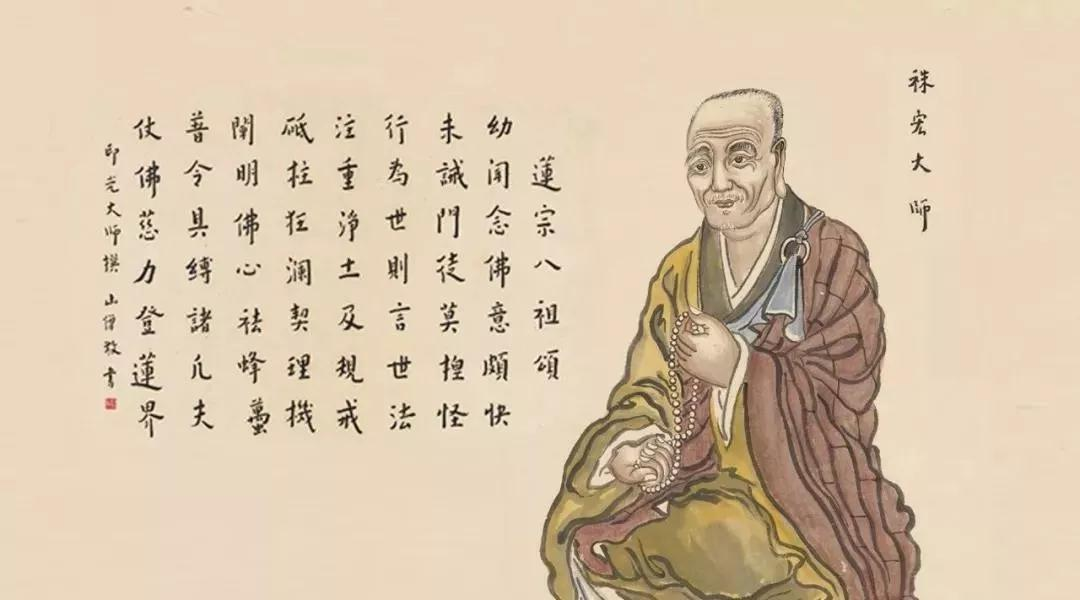 袾宏大師
蓮宗八祖頌
幼聞念佛意頗快
未誡門徒莫捏怪
行為世則言世法
注重淨土及規戒
砥柱狂瀾契理機
闡明佛心祛蜂蠆
普令具縛諸凡夫
仗佛慈力登蓮界
印光大師撰 山僧敬書